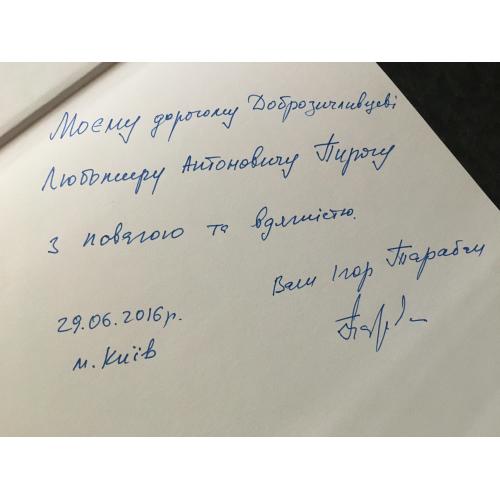 Моєму дорогому Доброзичливцеві
Любомиру Антоновичу Пирогу
з повагою та вдячністю.
Ваш Ігор Тарабан
29.06.2016р.
м. Київ